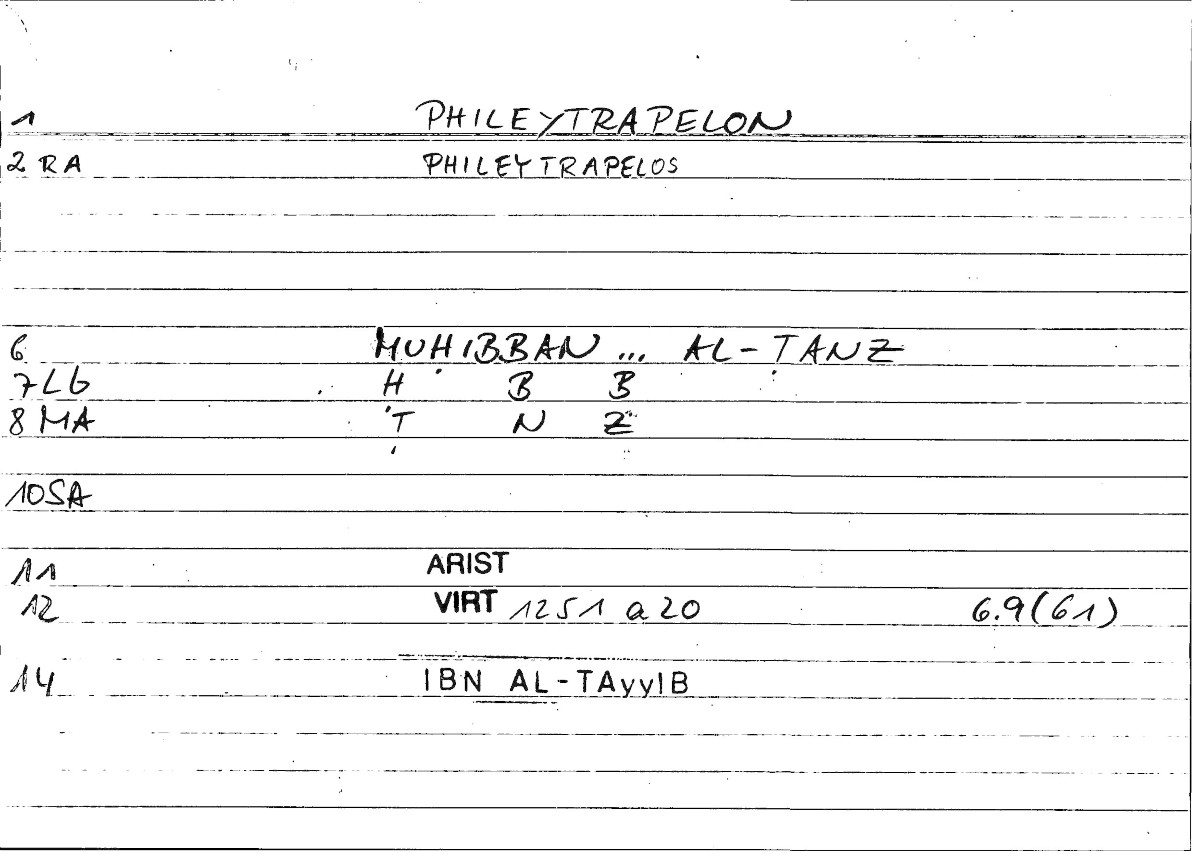 1 PHILEYTRAPELON
2 RA PHILEYTRAPELOS
6 MUḤIBBAN ... AL-ṬANZ
7 Lb Ḥ B B
8 MA Ṭ N Z
10 SA
11 ARIST
12 VIRT 1251 a 20 6.9(61)
14 IBN AL-TAyyIB